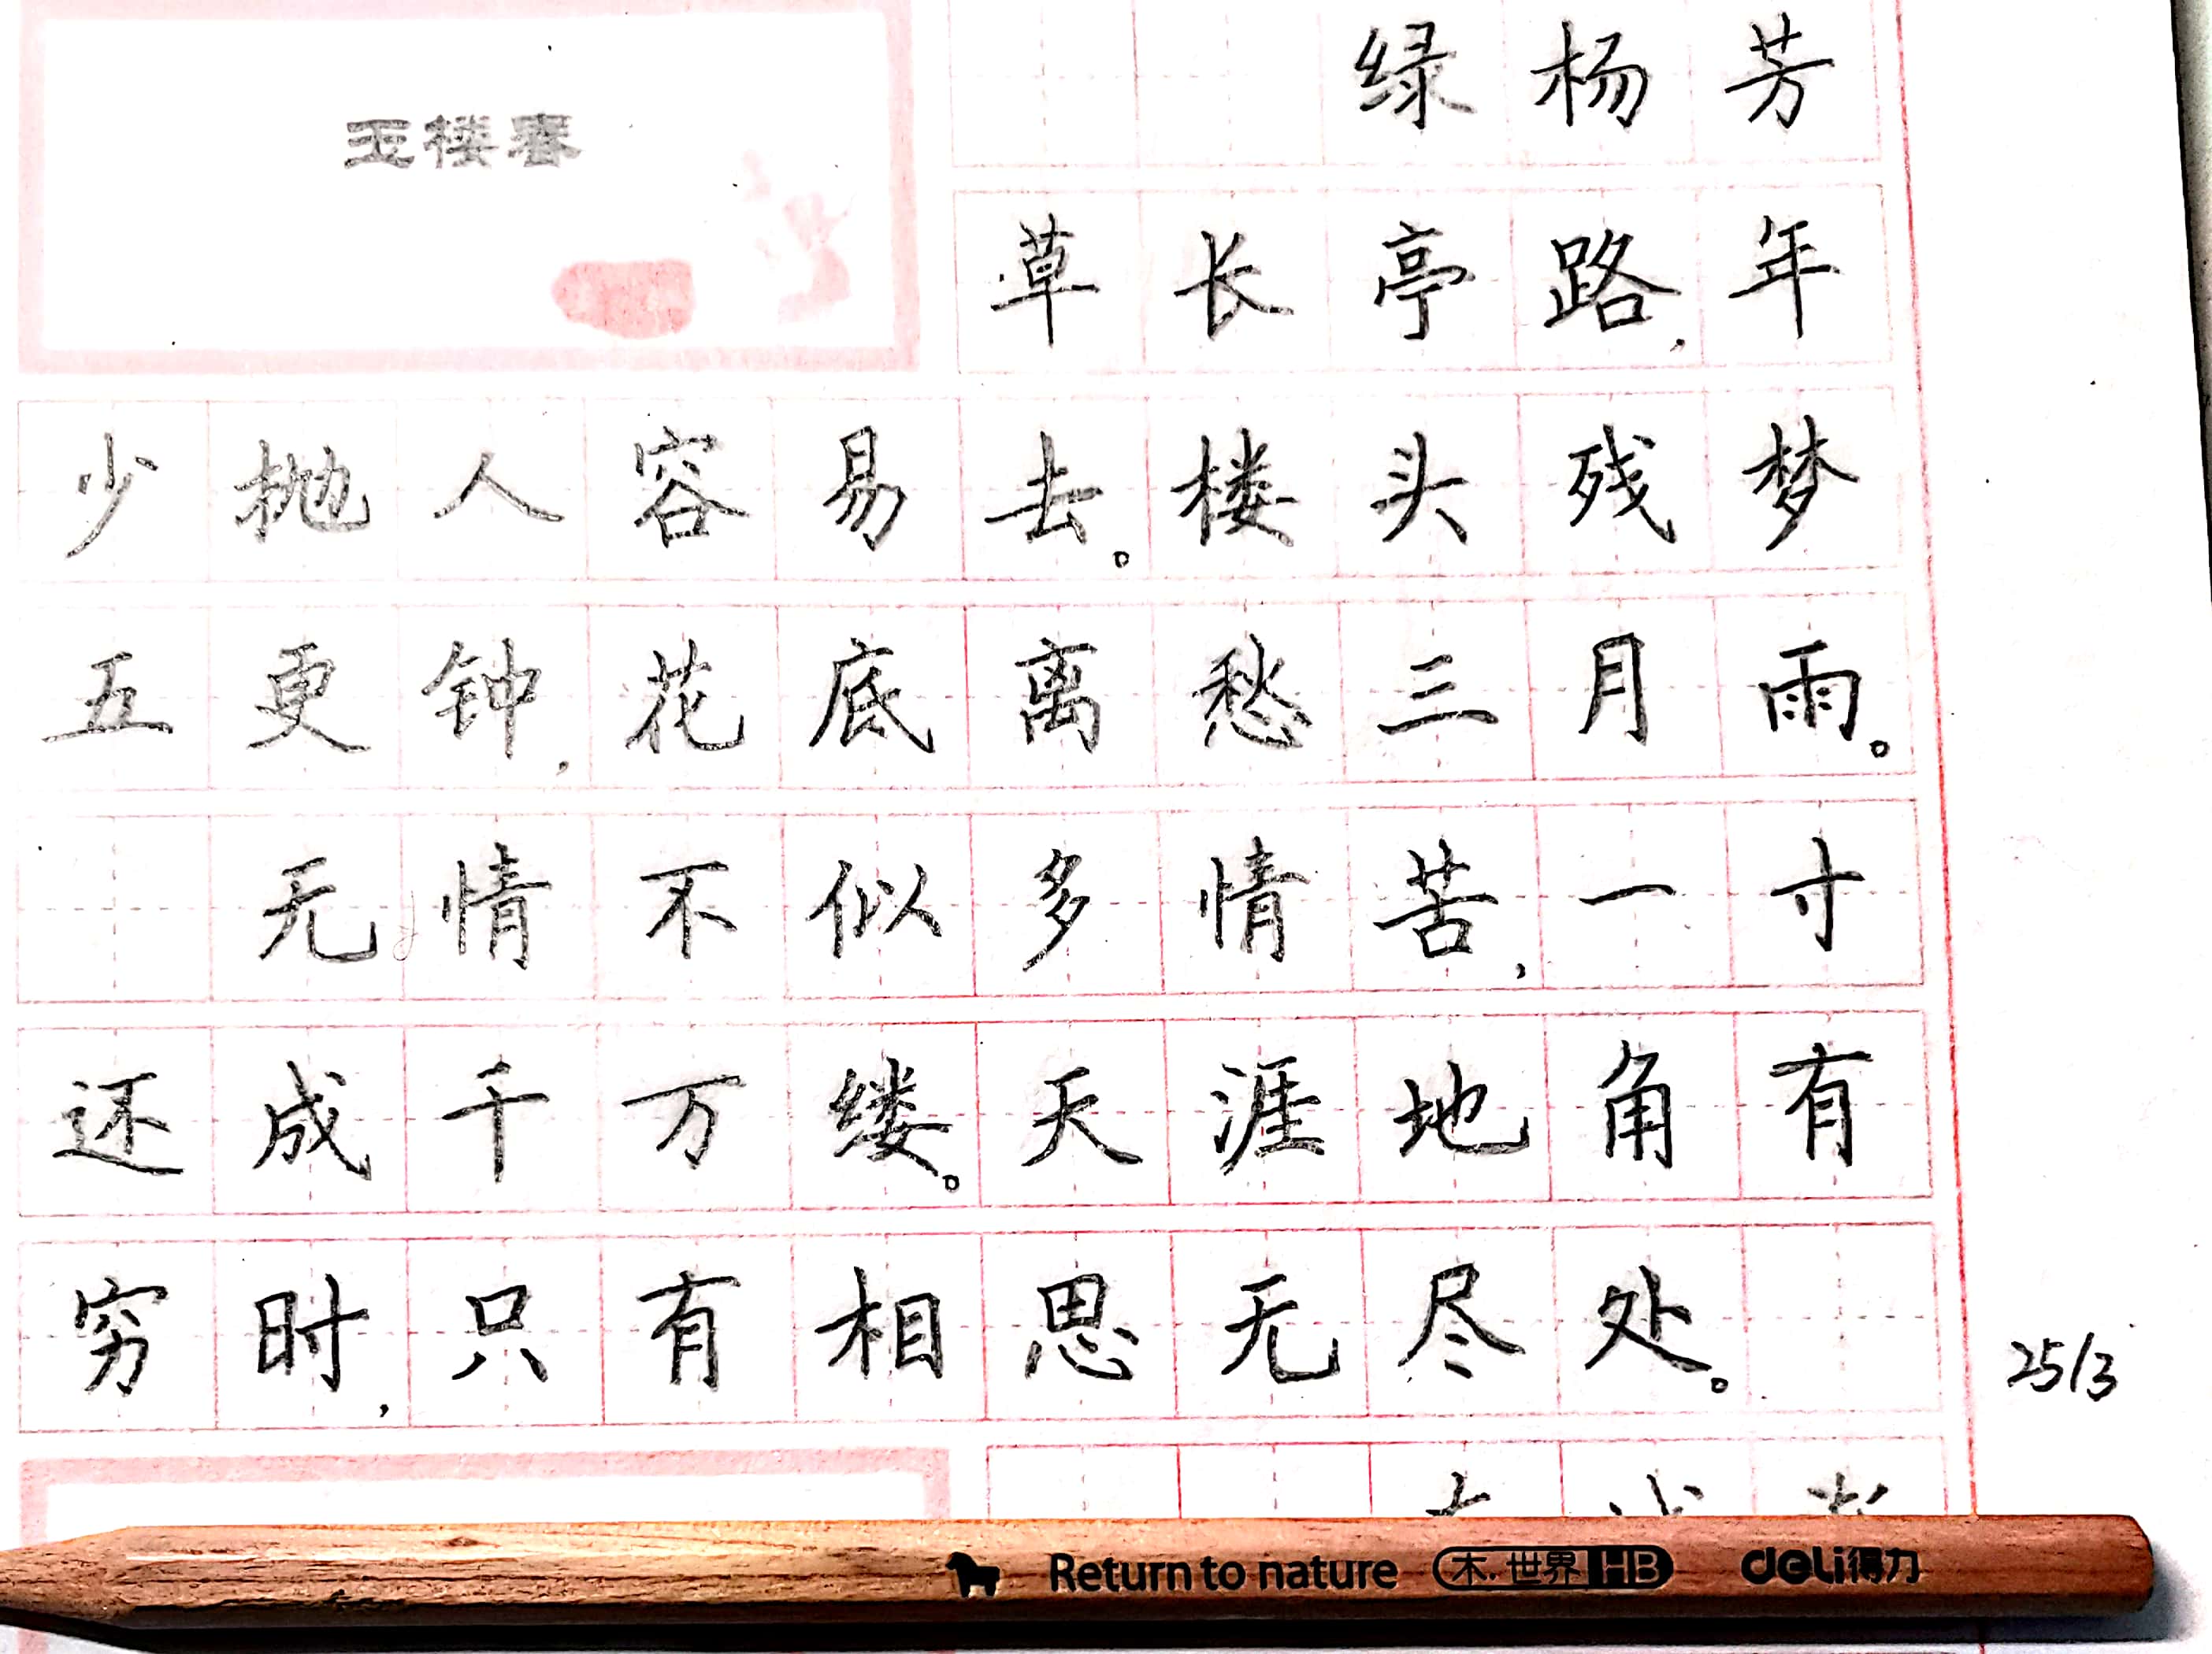 玉楼春
绿杨芳
草长亭路,年
少抛人容易去。楼头残梦
五更钟,花底离愁三月雨。
无情不似多情苦,一寸
还成千万缕。天涯地角有
穷时,只有相思无尽处。
25/3
Return to nature 木·世界 HB deli得力